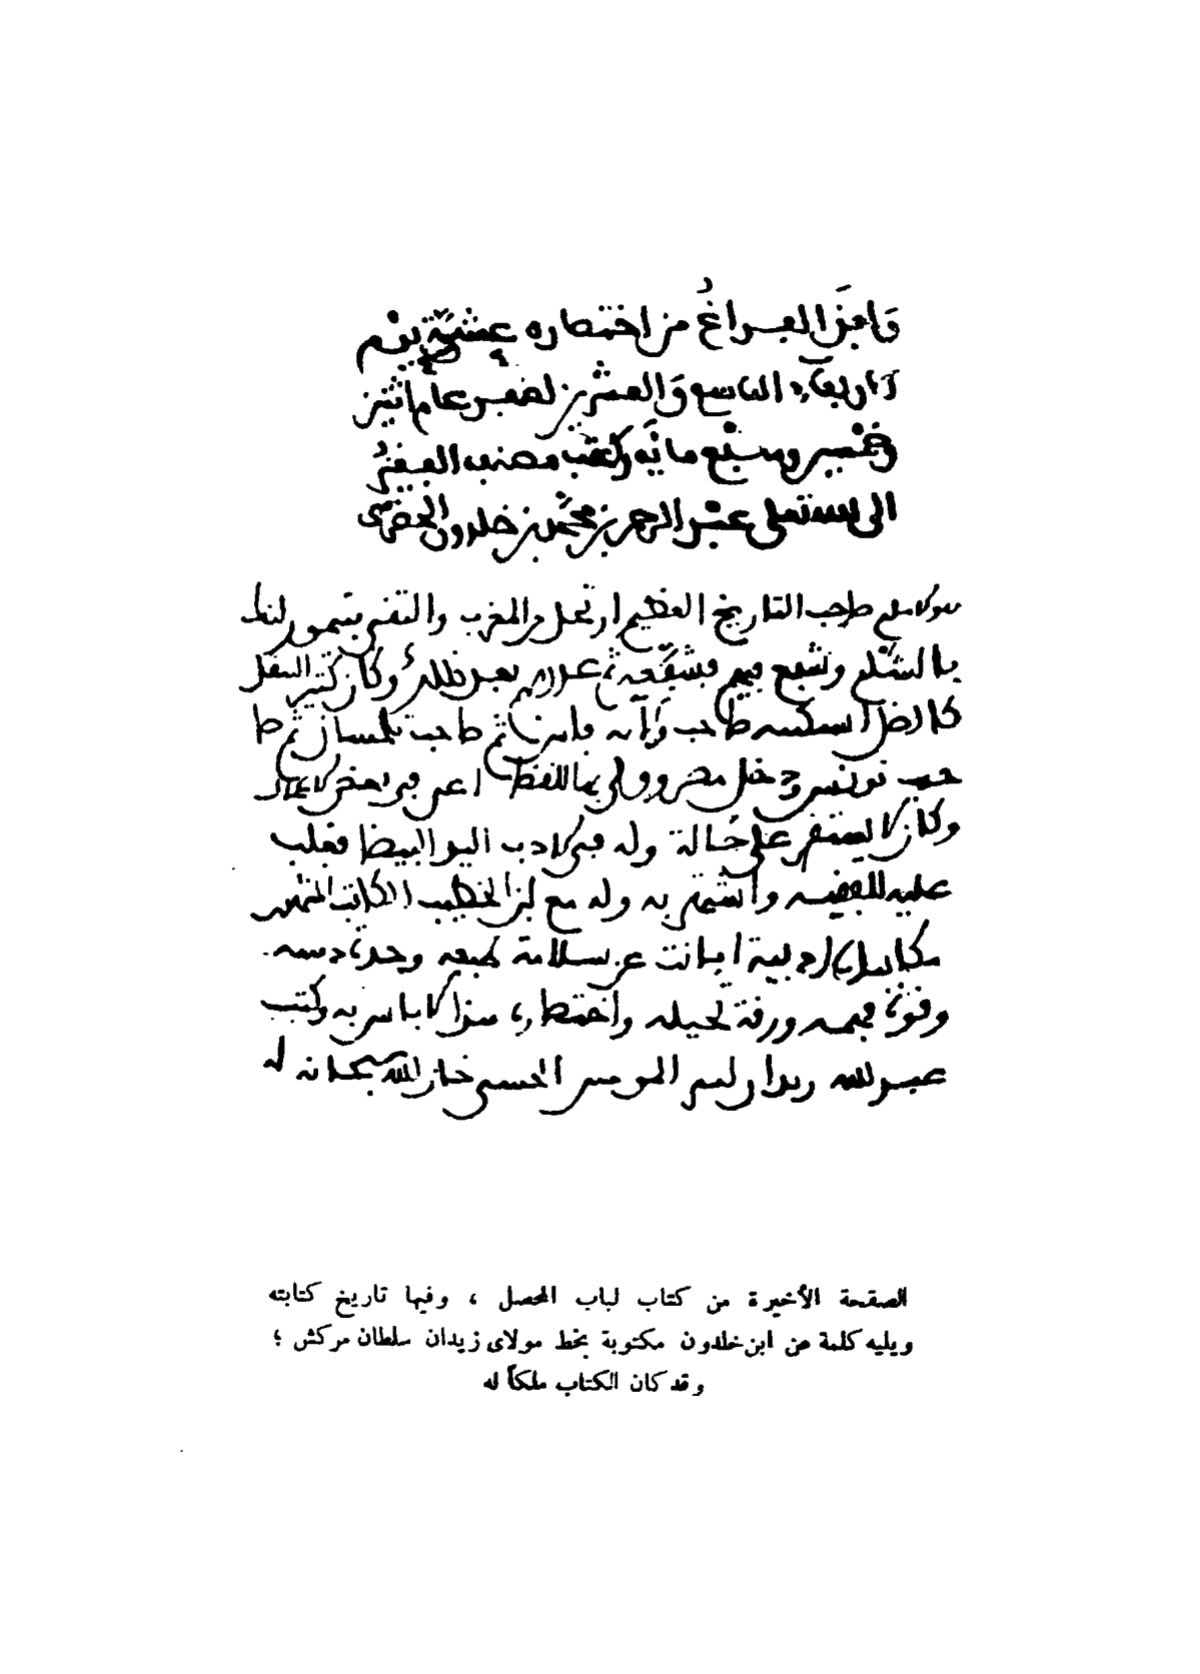 وَافقَ الفراغُ من اختصاره عشيّة يوم
الاربعاء التاسع وَالعشرين لصفر عام اثنين
وخمسين وسبع مائه وكتب مصنفه الفقيرُ
الى الله تعلى عبد الرحمن بن محمد بن خلدون الحضرمى
صاحب التاريخ العظيم ارتحل من المغرب والتقى بتيمور لنك
بالشام وتشفع فيهم فشفعه ثم بعد ذلك وكان كثير التنقل
صاحب فاس ثم صاحب تلمسان ثم صا
حب تونس ودخل مصر وولي بها للقضا اعنى فى بعض
وكان لا يستقر على حَالة وله فى الادب اليد البيضا فغلب
عليه الفقه واشتهر به وله مع ابن الخطيب الكاتب
ادبية ابانت عن سلامة طبعه
وقوة فهمه ورقة واختصاره هذا لا باس به وكتب
عبد الله زيدان امير المومنين الحسنى خار الله سبحانه له
الصفحة الأخيرة من كتاب لباب المحصل ، وفيها تاريخ كتابته
ويليه كلمة عن ابن خلدون مكتوبة بخط مولاى زيدان سلطان مركش ؛
وقد كان الكتاب ملكاً له